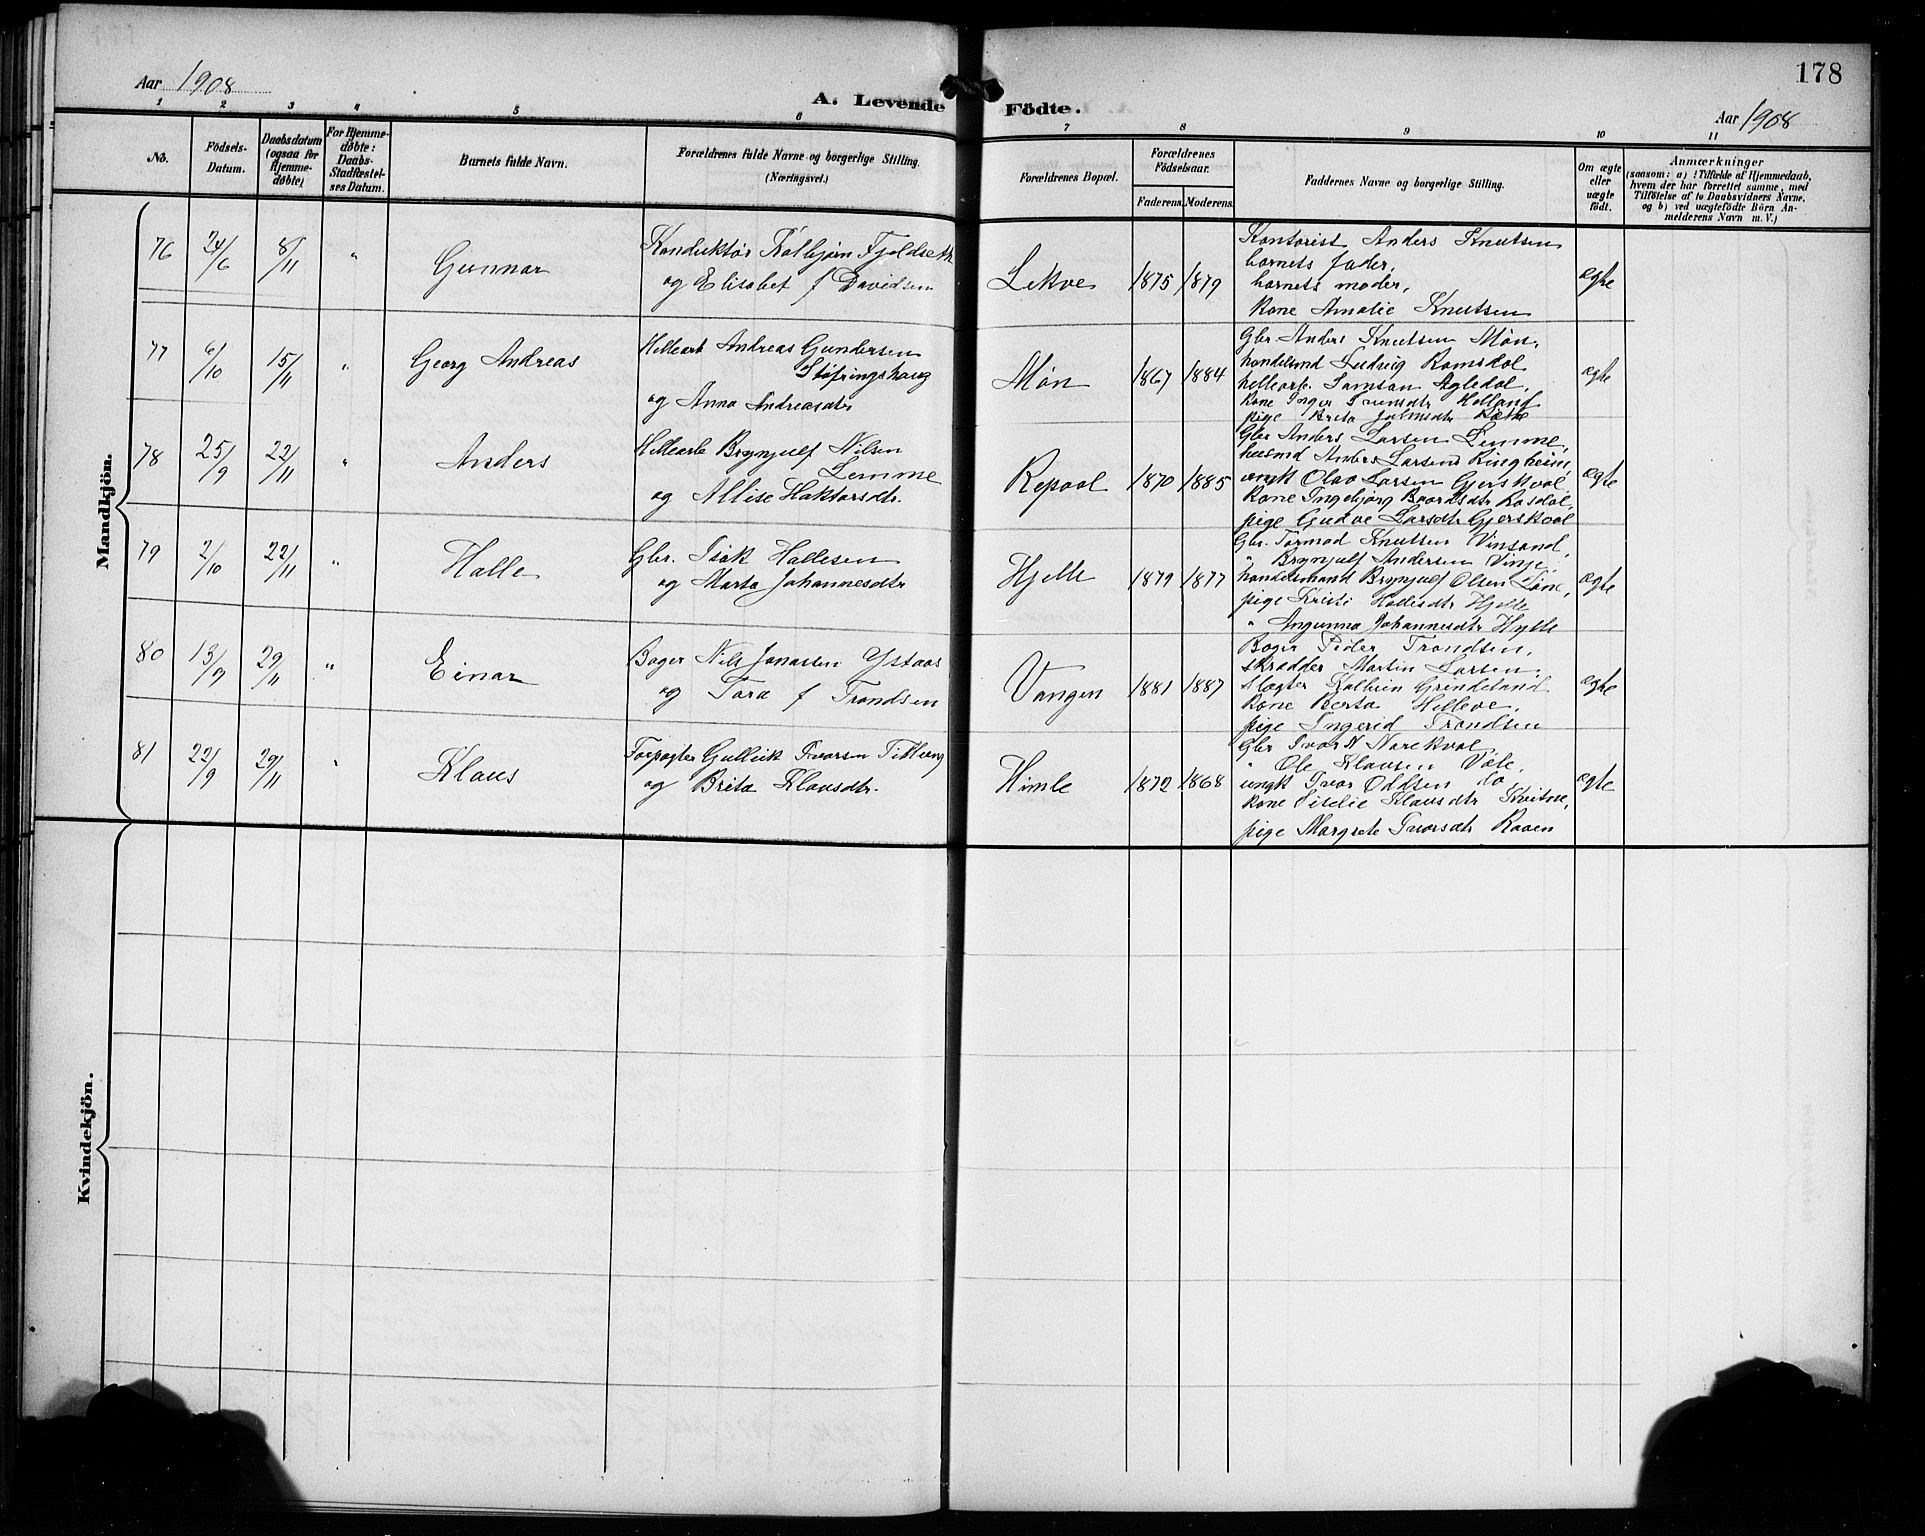 178
Aar 1908
Aar 1908
A. Levende Födte.
1 2 3 4 5 6 7 8 9 10 11
No.
Födsels-Datum.
Daabsdatum (ogsaa for Hjemme-døbte)
For Hjemme-døbte: Daabs-Stadfæstel-ses Datum.
Barnets fulde Navn.
Forældrenes fulde Navne og borgerlige Stilling.
(Næringsvei.)
Forældrenes Bopæl.
Forældrenes Födselsaar.
Faderens. Moderens.
Faddernes Navne og borgerlige Stilling.
Om ægte eller uægte født.
Anmærkninger
(saasom: a) i Tilfælde af Hjemmedaab,
hvem der har forrettet samme, med
Tilföielse af to Daabsvidners Navne,
og b) ved uægtefödte Börn An-
melderens Navn m. V.)
Mandkjön.
76 24/6 8/11 " Gunnar
Konduktør Kolbjørn Fjeldseth
og Elisabet f Davidsen
Lekve 1875 1879
Kontorist Anders Knutsen
barnets fader,
barnets moder,
Kone Amalie Knutsen
ægte
77 6/10 15/11 " Georg Andreas
Hellearb Andreas Gundersen
Støfringshaug
og Anna Andreasdtr
Møn 1867 1884
Gbr. Anders Knutsen Møn,
handelsmd Ludvig Ramsdal
hellearb. Samson Agledal,
Kone Inger Holland
pige Brita
ægte
78 25/9 22/11 " Anders
Hellearb Brynjulf Nilsen
Lemme
og Allise Haktorsdtr.
Repaal 1870 1885
Gbr Anders Larsen Lemme,
husmd Anders Larsen Ringheim,
ungk Olav Larsen Gjerskval
Kone Ingebjørg Baardsdtr Rasdal,
pige Gudve Larsdtr Gjerskvol
ægte
79 2/10 22/11 " Halle
Gbr. Isak Hallesen
og Marta Johannesdtr
Hjelle 1879 1877
Gbr. Tormod Knutsen Vinsand,
" Brynjulf Andersen Vinje,
handelsmand Brynjulf Olsen Løne,
pige Kristi Hallesdtr Hjelle
" Angunna Johannesdtr Hylle
ægte
80 13/9 29/11 " Einar
Bager Nils Jonassen Ystaas
og Tora f Trondsen
Vangen 1881 1887
Bager Peder Trondsen,
skrædder Martin Larsen,
slagter Kolbein Grindeland
Kone Berta Helleve,
pige Ingerid Trondsen
ægte
81 22/9 29/11 " Klaus
Forpagter Gulleik Ivarsen Titlung
og Brita Klausdtr.
Himle 1872 1868
Gbr Ivar N Norekval
" Ole Klausen Væle,
ungk Ivar Oddsen do
Kone Siselie Klausdtr Kvitne,
pige Margrete Ivarsdtr Raaen
ægte
Kvindekjön.